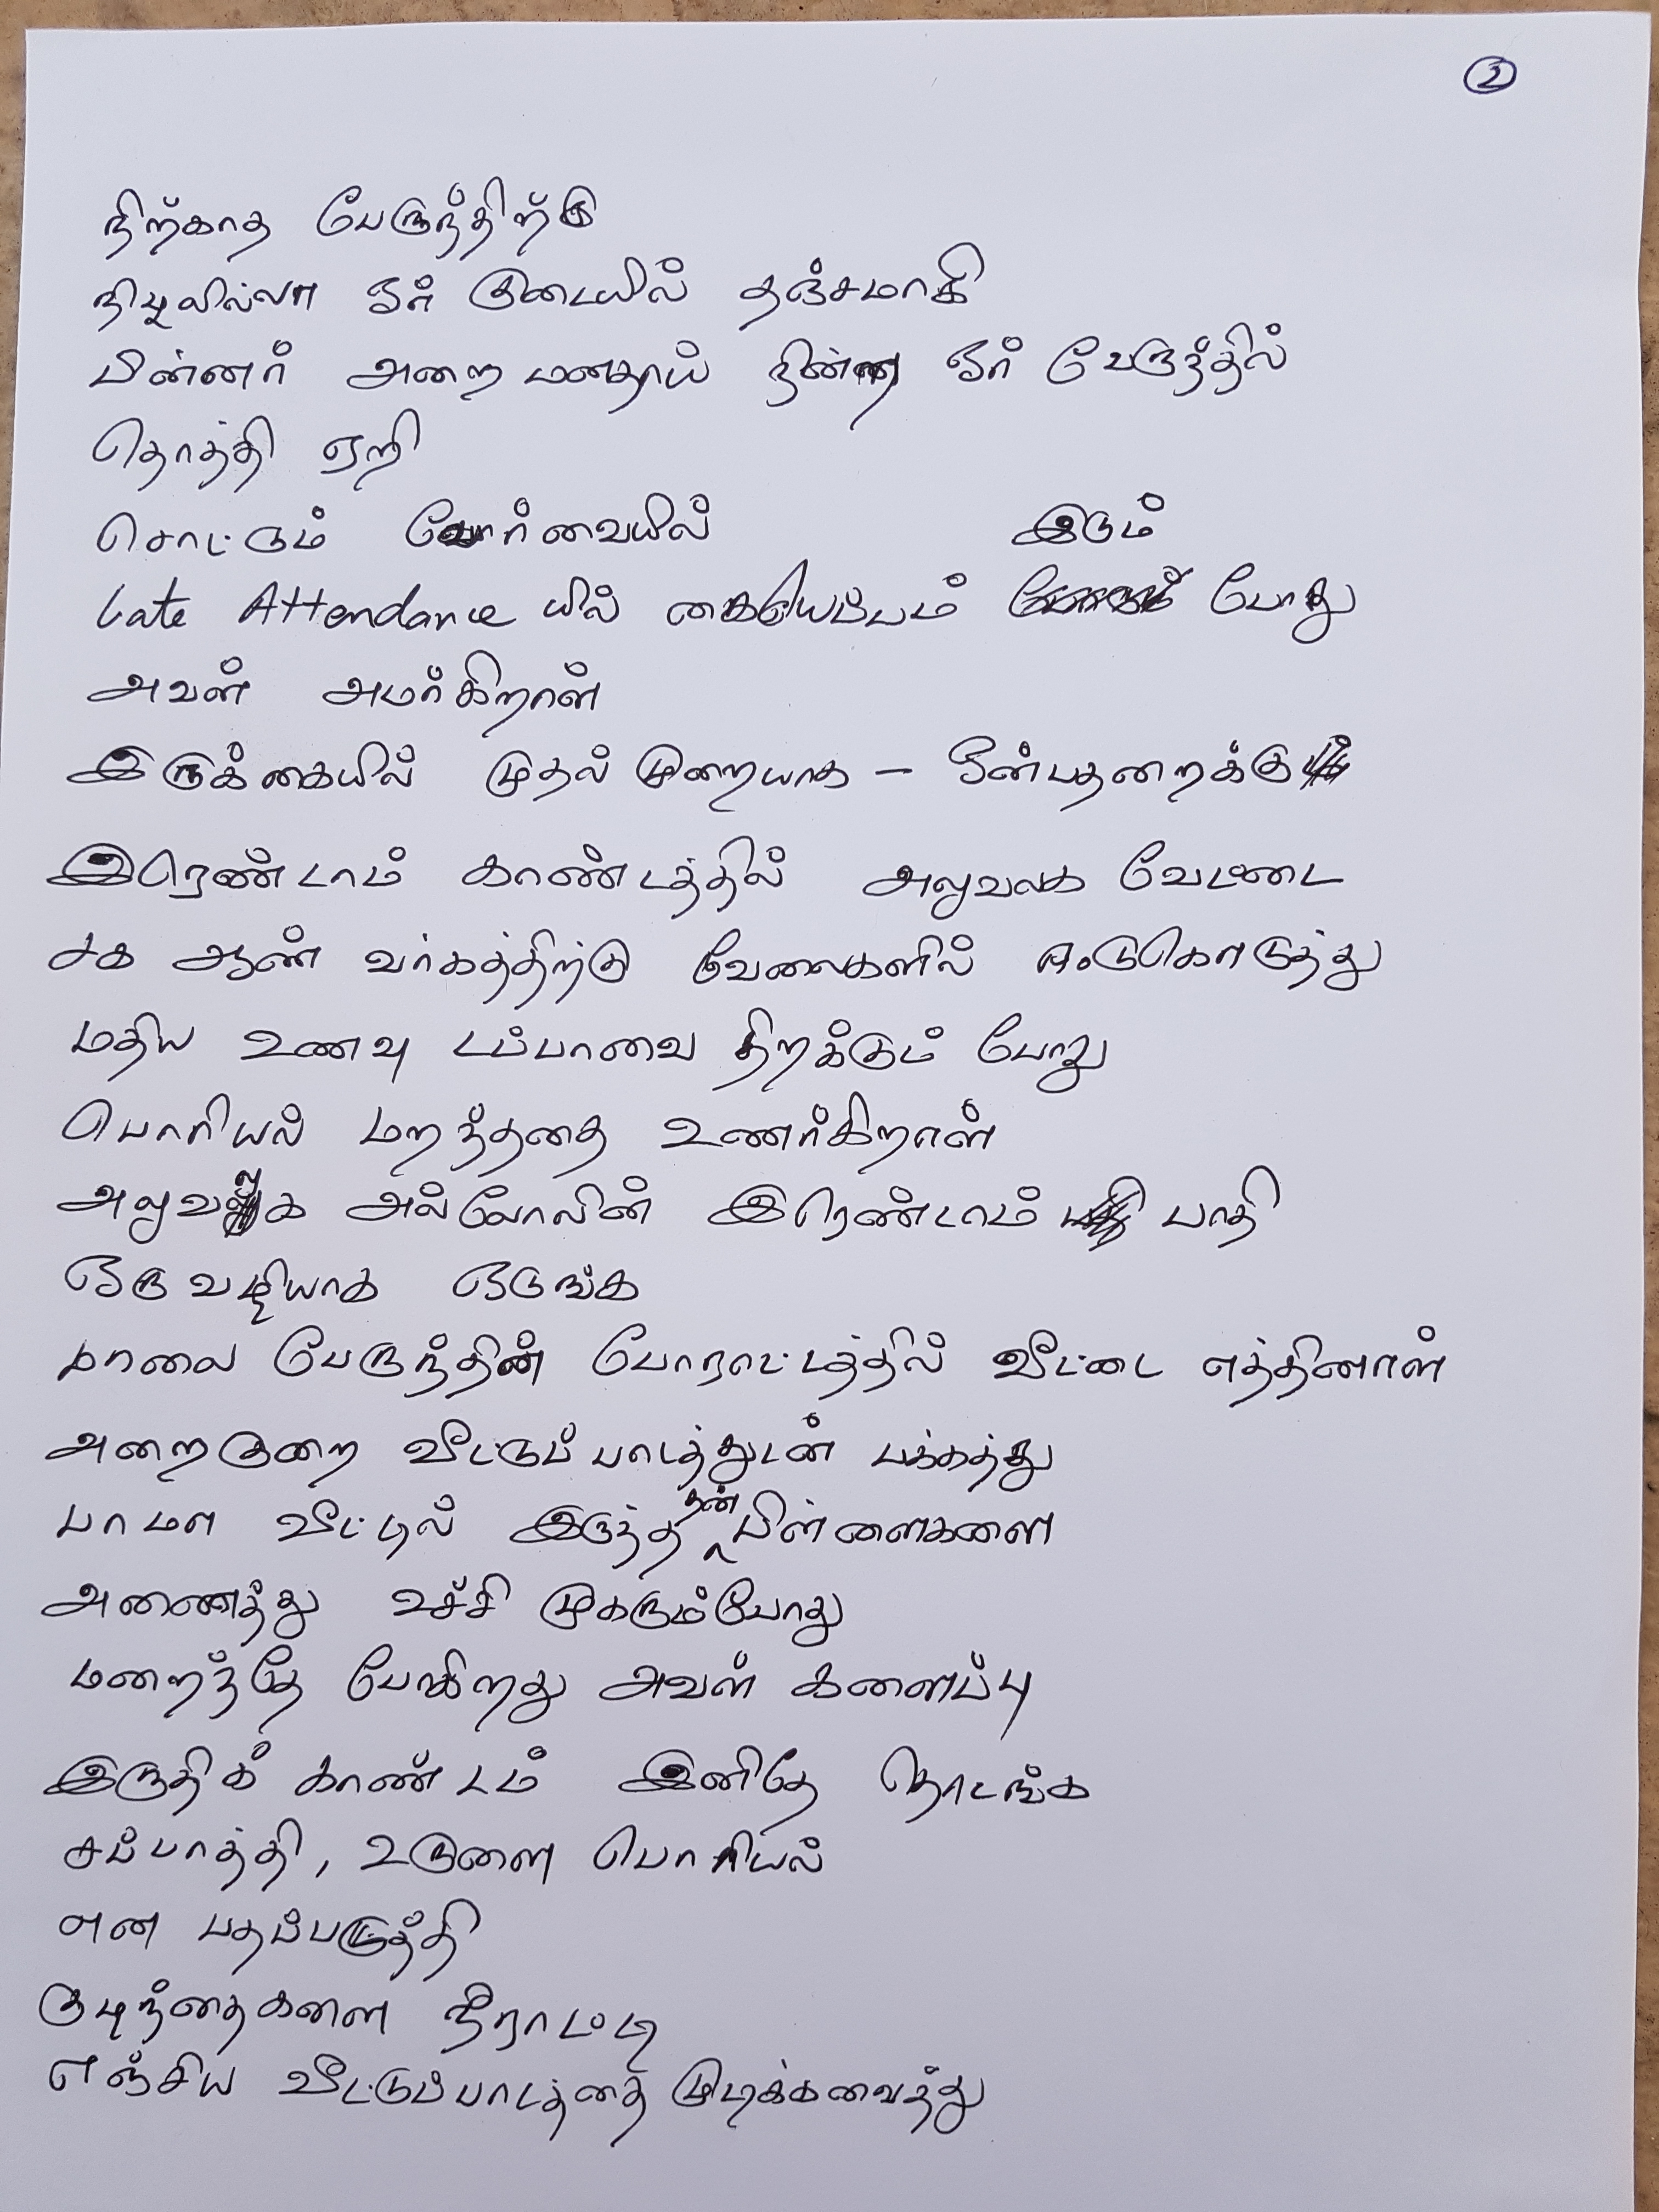 2
நிற்காத பேருந்திற்கு
நிழலில்லா ஓர் குடையில் தஞ்சமாகி
பின்னர் அறை மனதாய் நின்ற ஓர் பேருந்தில்
தொத்தி ஏறி
சொட்டும் வேர்வையில்
Late Attendance யில் கையெப்பம் இடும் போது
அவள் அமர்கிறாள்
இருக்கையில் முதல் முறையாக – ஒன்பதறைக்கு
இரெண்டாம் காண்டத்தில் அலுவலக வேட்டை
சக ஆண் வர்கத்திற்கு வேலைகளில் ஈடுகொடுத்து
மதிய உணவு டப்பாவை திறக்கும் போது
பொரியல் மறந்ததை உணர்கிறாள்
அலுவலக அல்லோலின் இரெண்டாம் பாதி
ஒரு வழியாக ஒடுங்க
மாலை பேருந்தின் போராட்டத்தில் வீட்டை எத்தினாள்
அறைகுறை வீட்டுப்பாடத்துடன் பக்கத்து
பாமா வீட்டில் இருந்த தன் பிள்ளைகளை
அணைத்து உச்சி முகரும்போது
மறைந்தே போகிறது அவள் களைப்பு
இருதிக் காண்டம் இனிதே தொடங்க
சப்பாத்தி, உருளை பொரியல்
என பதப்படுத்தி
குழந்தைகளை நீராட்டி
எஞ்சிய வீட்டுப்பாடத்தை முடிக்கவைத்து